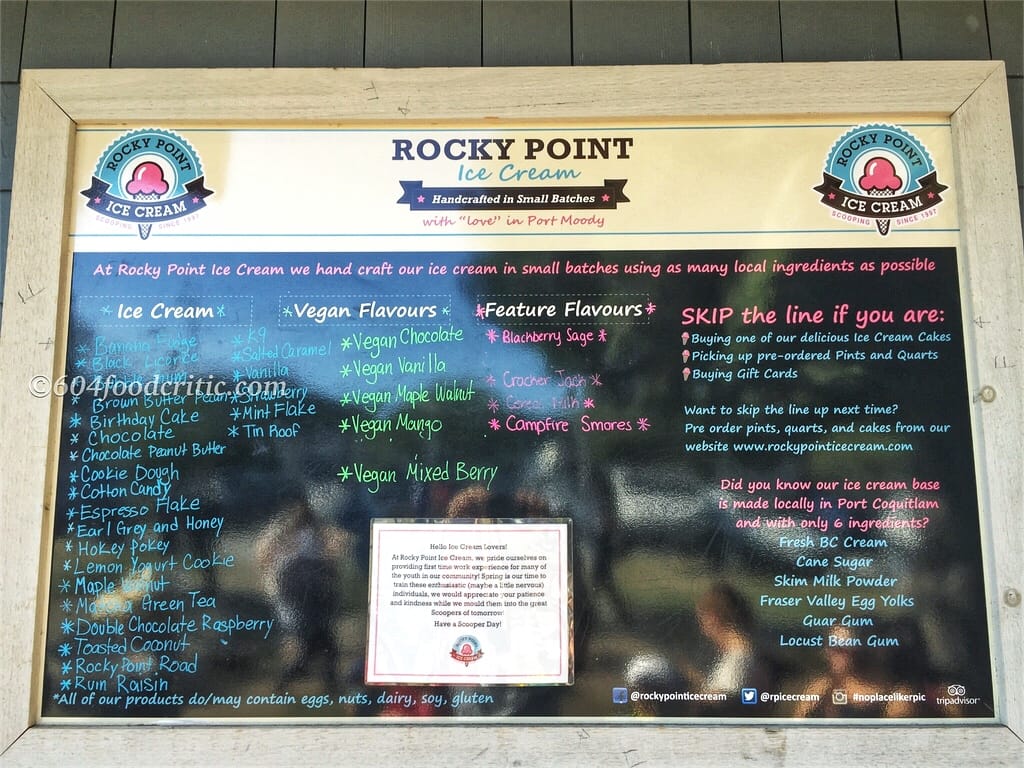 ROCKY POINT
ICE CREAM
SCOOPING SINCE 1997
ROCKY POINT
Ice Cream
Handcrafted in Small Batches
with "love" in Port Moody
ROCKY POINT
ICE CREAM
SCOOPING SINCE 1997
At Rocky Point Ice Cream we hand craft our ice cream in small batches using as many local ingredients as possible
*Ice Cream*
* Banana Fudge
* Black Licorice
* Brown Butter Pecan
* Birthday Cake
* Chocolate
* Chocolate Peanut Butter
* Cookie Dough
* Cotton Candy
* Espresso Flake
* Earl Grey and Honey
* Hokey Pokey
* Lemon Yogurt Cookie
* Maple Walnut
* Matcha Green Tea
* Double Chocolate Raspberry
* Toasted Coconut
* Rocky Point Road
* Rum Raisin
* K9
* Salted Caramel
* Vanilla
* Strawberry
* Mint Flake
* Tin Roof
*Vegan Flavours*
*Vegan Chocolate
*Vegan Vanilla
*Vegan Maple Walnut
*Vegan Mango
*Vegan Mixed Berry
*Feature Flavours*
* Blackberry Sage *
* Cracker Jack *
* Cereal Milk *
* Campfire Smores *
SKIP the line if you are:
Buying one of our delicious Ice Cream Cakes
Picking up pre-ordered Pints and Quarts
Buying Gift Cards
Want to skip the line up next time?
Pre order pints, quarts, and cakes from our
website www.rockypointicecream.com
Did you know our ice cream base
is made locally in Port Coquitlam
and with only 6 ingredients?
Fresh BC Cream
Cane Sugar
Skim Milk Powder
Fraser Valley Egg Yolks
Guar Gum
Locust Bean Gum
Hello Ice Cream Lovers!
At Rocky Point Ice Cream, we pride ourselves on
providing first time work experience for many of
the youth in our community! Spring is our time to
train these enthusiastic (maybe a little nervous)
individuals, we would appreciate your patience
and kindness while we mould them into the great
Scoopers of tomorrow!
Have a Scooper Day!
*All of our products do/may contain eggs, nuts, dairy, soy, gluten
@rockypointicecream
@rpicecream
#noplacelikerpic
tripadvisor
©604foodcritic.com